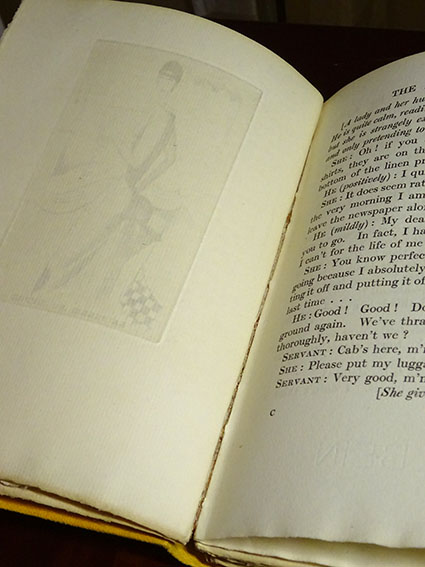 THE
[A lady and her hu
He is quite calm, readi
but she is strangely ex
and only pretending to
SHE: Oh! if you
shirts, they are on th
bottom of the linen pr
HE (positively): I qu
SHE: It does seem rat
the very morning I am
leave the newspaper alon
HE (mildly): My dea
you to go. In fact, I ha
I can't for the life of me
SHE: You know perfec
going because I absolutely
ting it off and putting it of
last time . . .
HE: Good! Good! Do
ground again. We've thra
thoroughly, haven't we?
SERVANT: Cab's here, m'
SHE: Please put my lugga
SERVANT: Very good, m'
[She giv
C